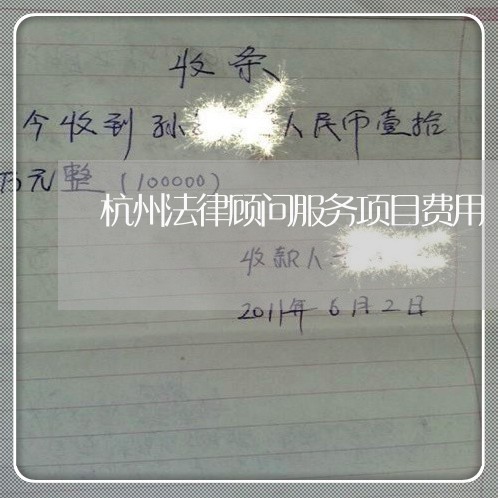 收条
今收到孙 人民币壹拾
万元整（100000）
杭州法律顾问服务项目费用
收款人
2011年6月2日